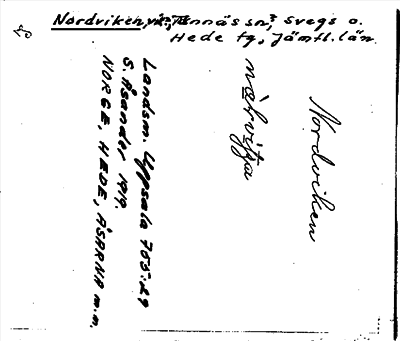 Nordviken, Tännäs sn, Svegs o.
Hede tg, Jämtl. län
Nordviken
nɷ̀ɽvitʃa
Landsm. Uppsala 703:29
S. Åsander 1919.
NORGE, HEDE, ÅSARNA m.m.